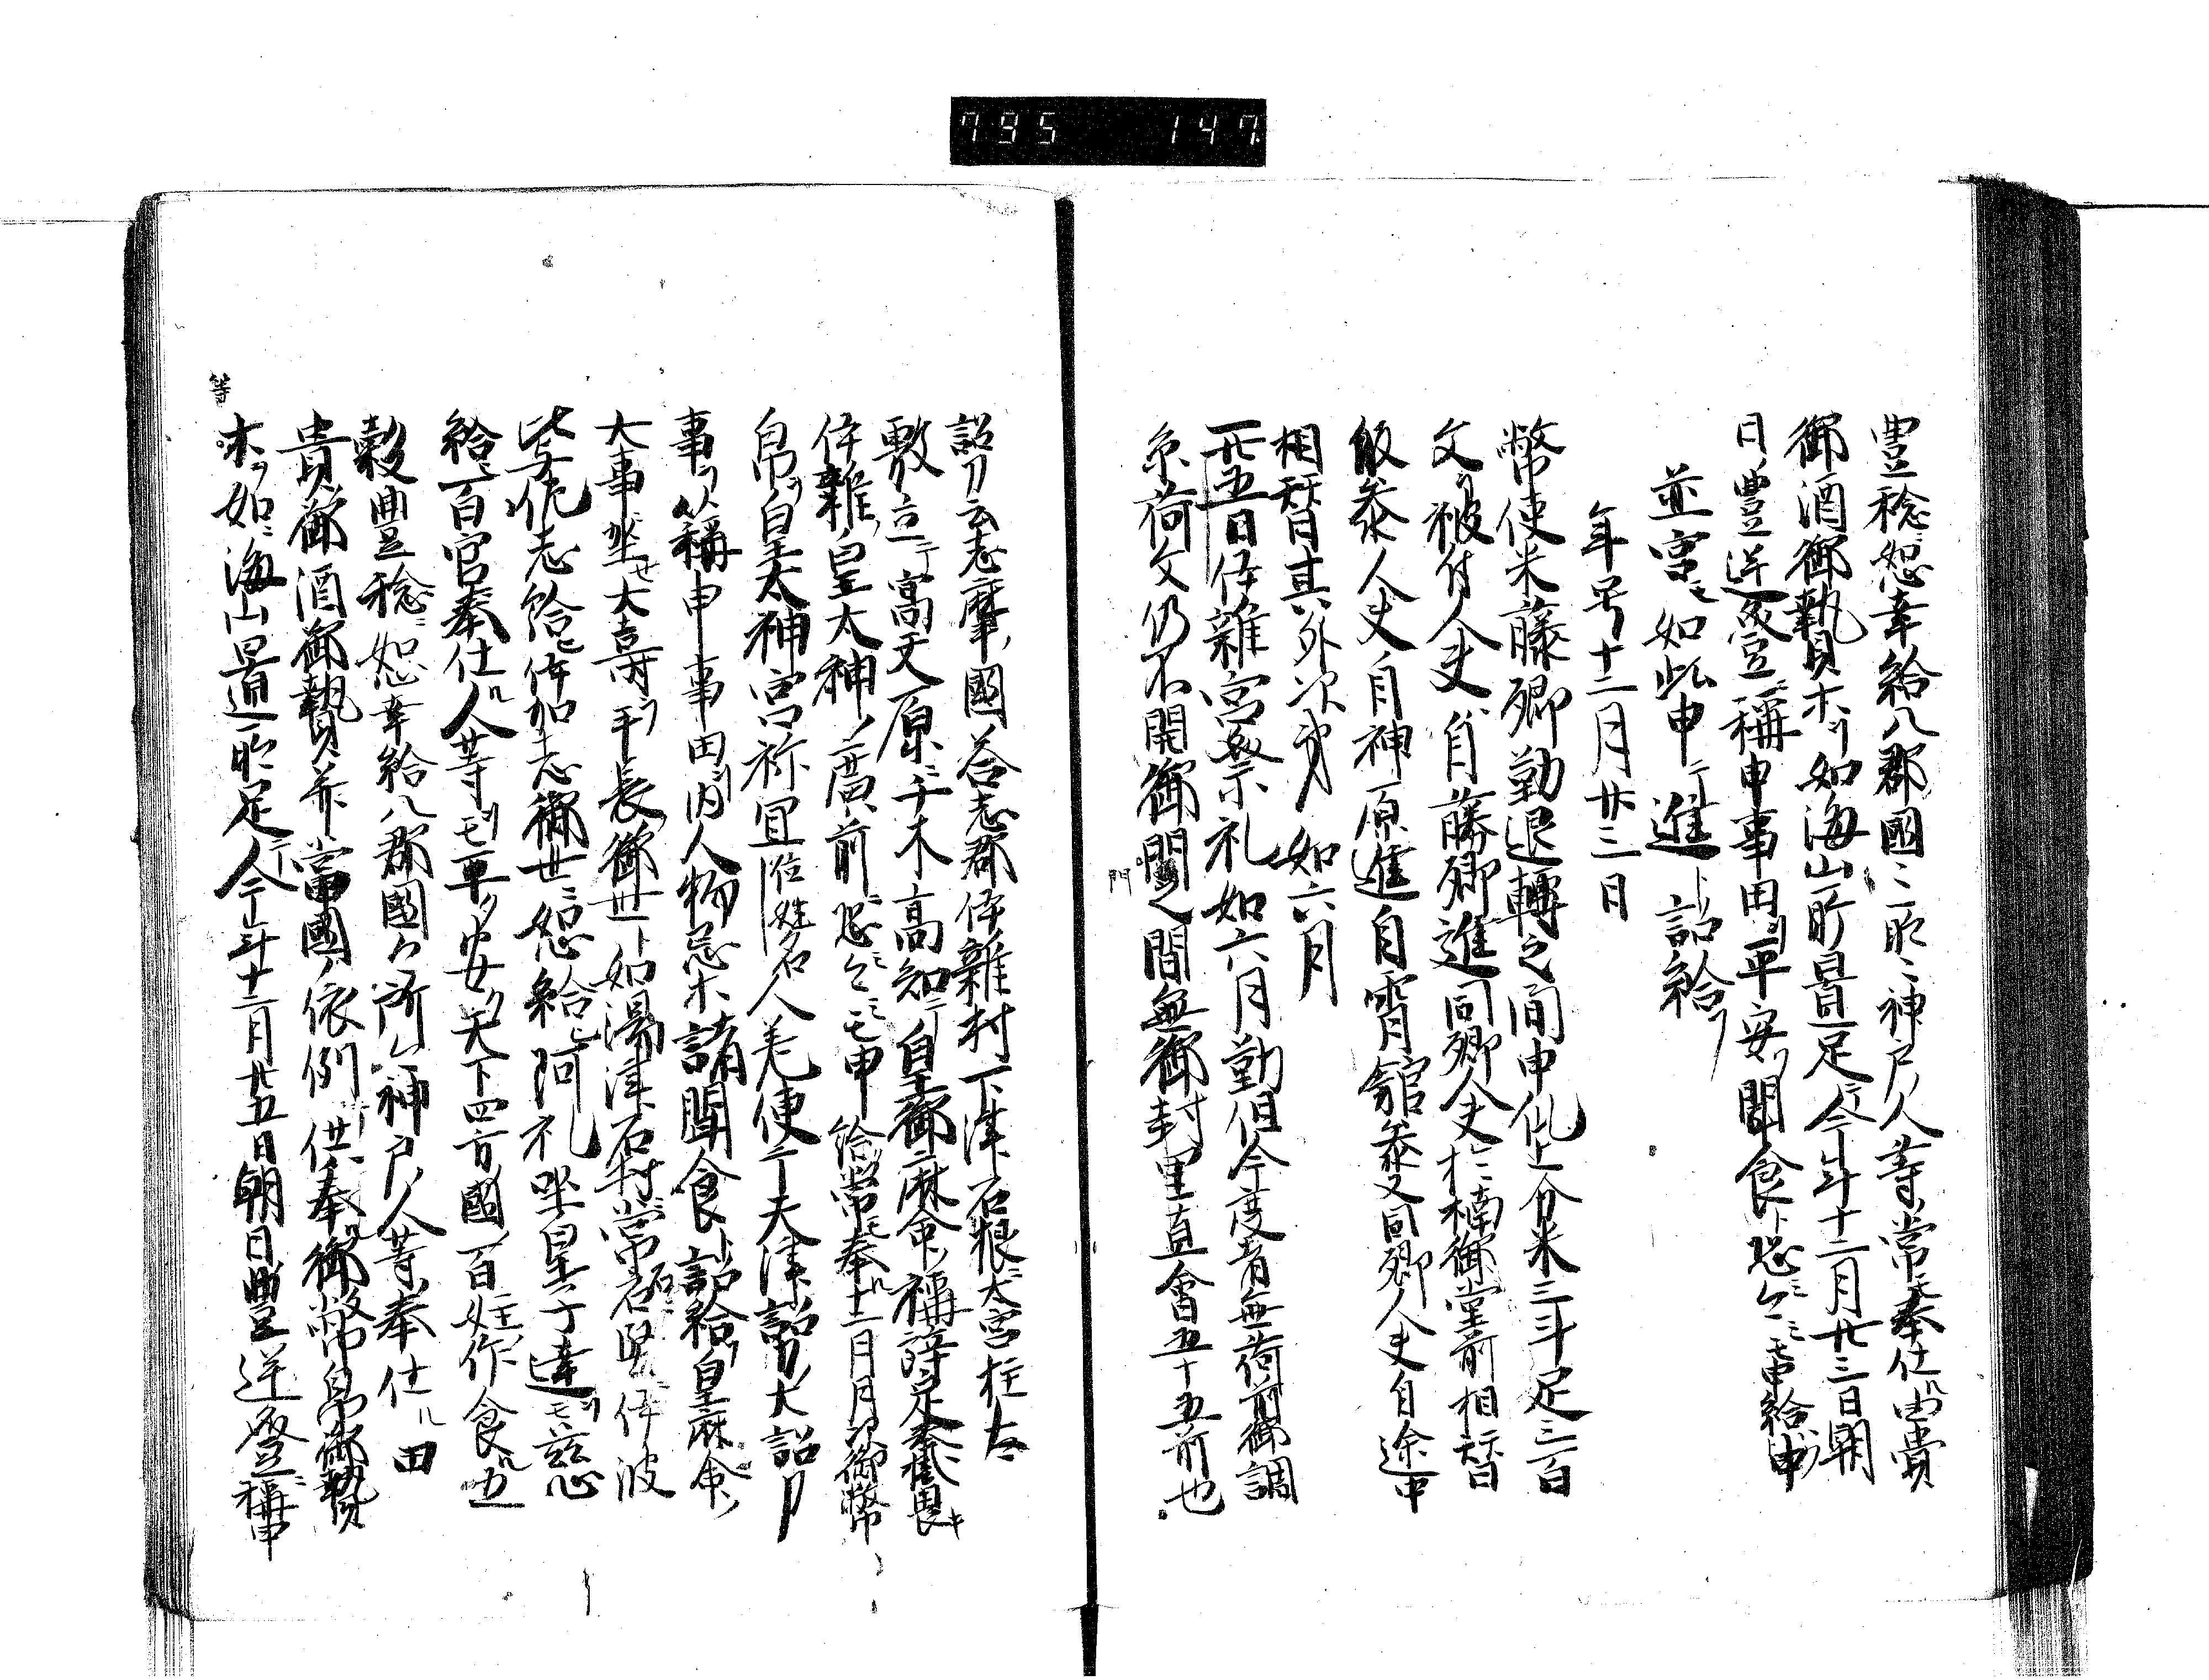 795 147
豊稔ニ恕幸給八郡國ニ所ニ神戸ノ人等常奉仕ル由貴
御酒御贄木ヲ如海山所置足テ今年十二月廿三日朝
日ノ豊逆登ニ稱申事由ヲ平安聞食ト恐ミ恐ミモ申給申
並宮ニモ如此申テ進ト詔給フ
年号十二月廿三日
幣使米藤卿勤退轉之間申化上分米三斗足二百
文ヲ被付人夫自藤卿進同卿人夫於楠御堂前相替
飯泰人夫自神原進自宵舘參又同卿人夫自途中
相替其外次第如六月
一廿五日伊雜宮祭礼如六月勤但今度者無荷前御調
糸荷文仍不開御門之間無御封里直會五十五前也
門
詔刀云志摩ノ國答志郡伊雜村下津石根ニ大宮柱太
敷立テ高天原ニ千木高知テ皇御麻命ノ稱辞定奉掛畏キ
伊雜ノ皇太神ノ廣前ニ恐ミ恐ミモ申給常モ奉ル十二月月次御幣
帛ヲ皇太神宮祢宜位姓名人差使テ天津詔刀ノ大詔刀
事ヲ以稱申事由ヲ内人物忌木諸聞食ト詔給フ皇麻命ノ
大事坐セ大壽ヲ手長御世ト如湯津石村常石堅伊波
比与佐志給ヒ伊加志御世ニ恕給ヒ阿礼坐皇子達ヲモ慈
給ヒ百官奉仕ル人等ヲモ平ク安ク天下四方國ノ百姓作食ル五
穀豊稔ニ恕幸給八郡國々所々神戸ノ人等奉仕ル由
貴御酒御贄并當國ノ依例供奉御幣帛御贄
等
木ヲ如ニ海山置所足テ今年十二月廿五日朝日豊逆登ニ稱申